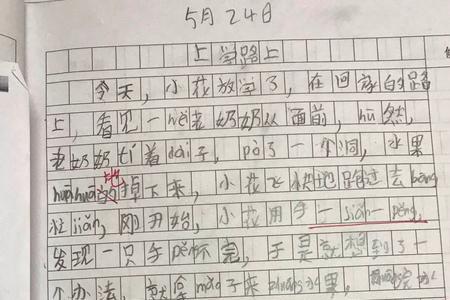 5月24日
上学路上
今天，小花放学了，在回家的路
上，看见一 老奶奶从 面前，hū然，
老奶奶tí着dài子，pò了一个洞，水果
huāhuā地掉下来，小花飞快地跑过去bāng
jiǎn，刚开始，小花用手一jiǎn一pěng，
发现一只手pěng不完，于是就想到了一
个办法，就拿mào子来zhuāng水果，